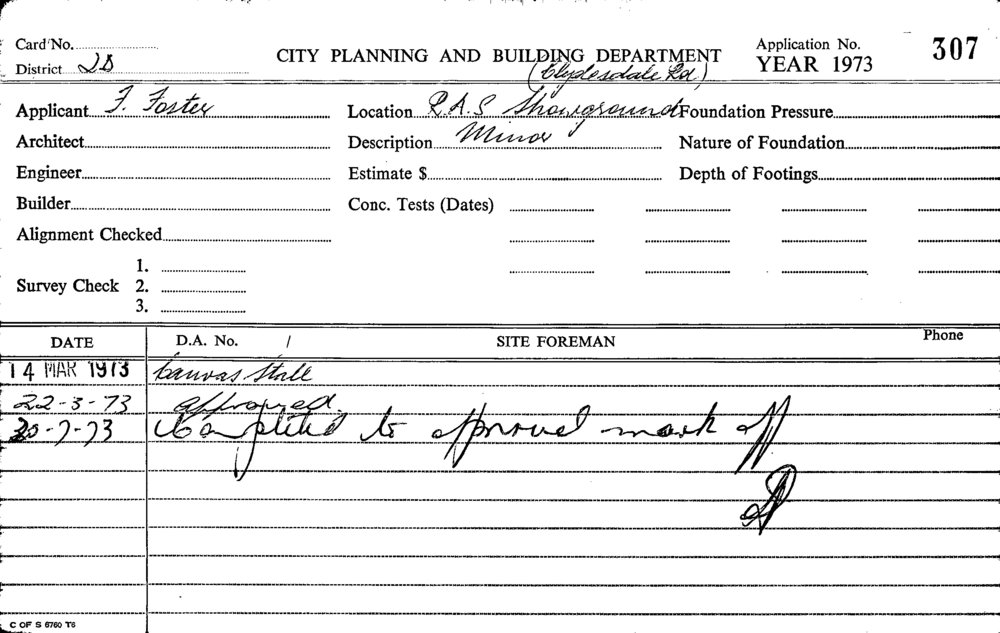 Card No.
District 2D
CITY PLANNING AND BUILDING DEPARTMENT
(Clydesdale Rd)
Application No. 307
YEAR 1973
Applicant F. Foster
Location R.A.S Showground
Foundation Pressure
Architect
Description Minor
Nature of Foundation
Engineer
Estimate $
Depth of Footings
Builder
Conc. Tests (Dates)
Alignment Checked
Survey Check
1.
2.
3.
DATE
D.A. No. /
SITE FOREMAN
Phone
14 MAR 1973 Canvas Stall
22-3-73 approved.
30-7-73 Completed to approval mark off
C OF S 6760 T6